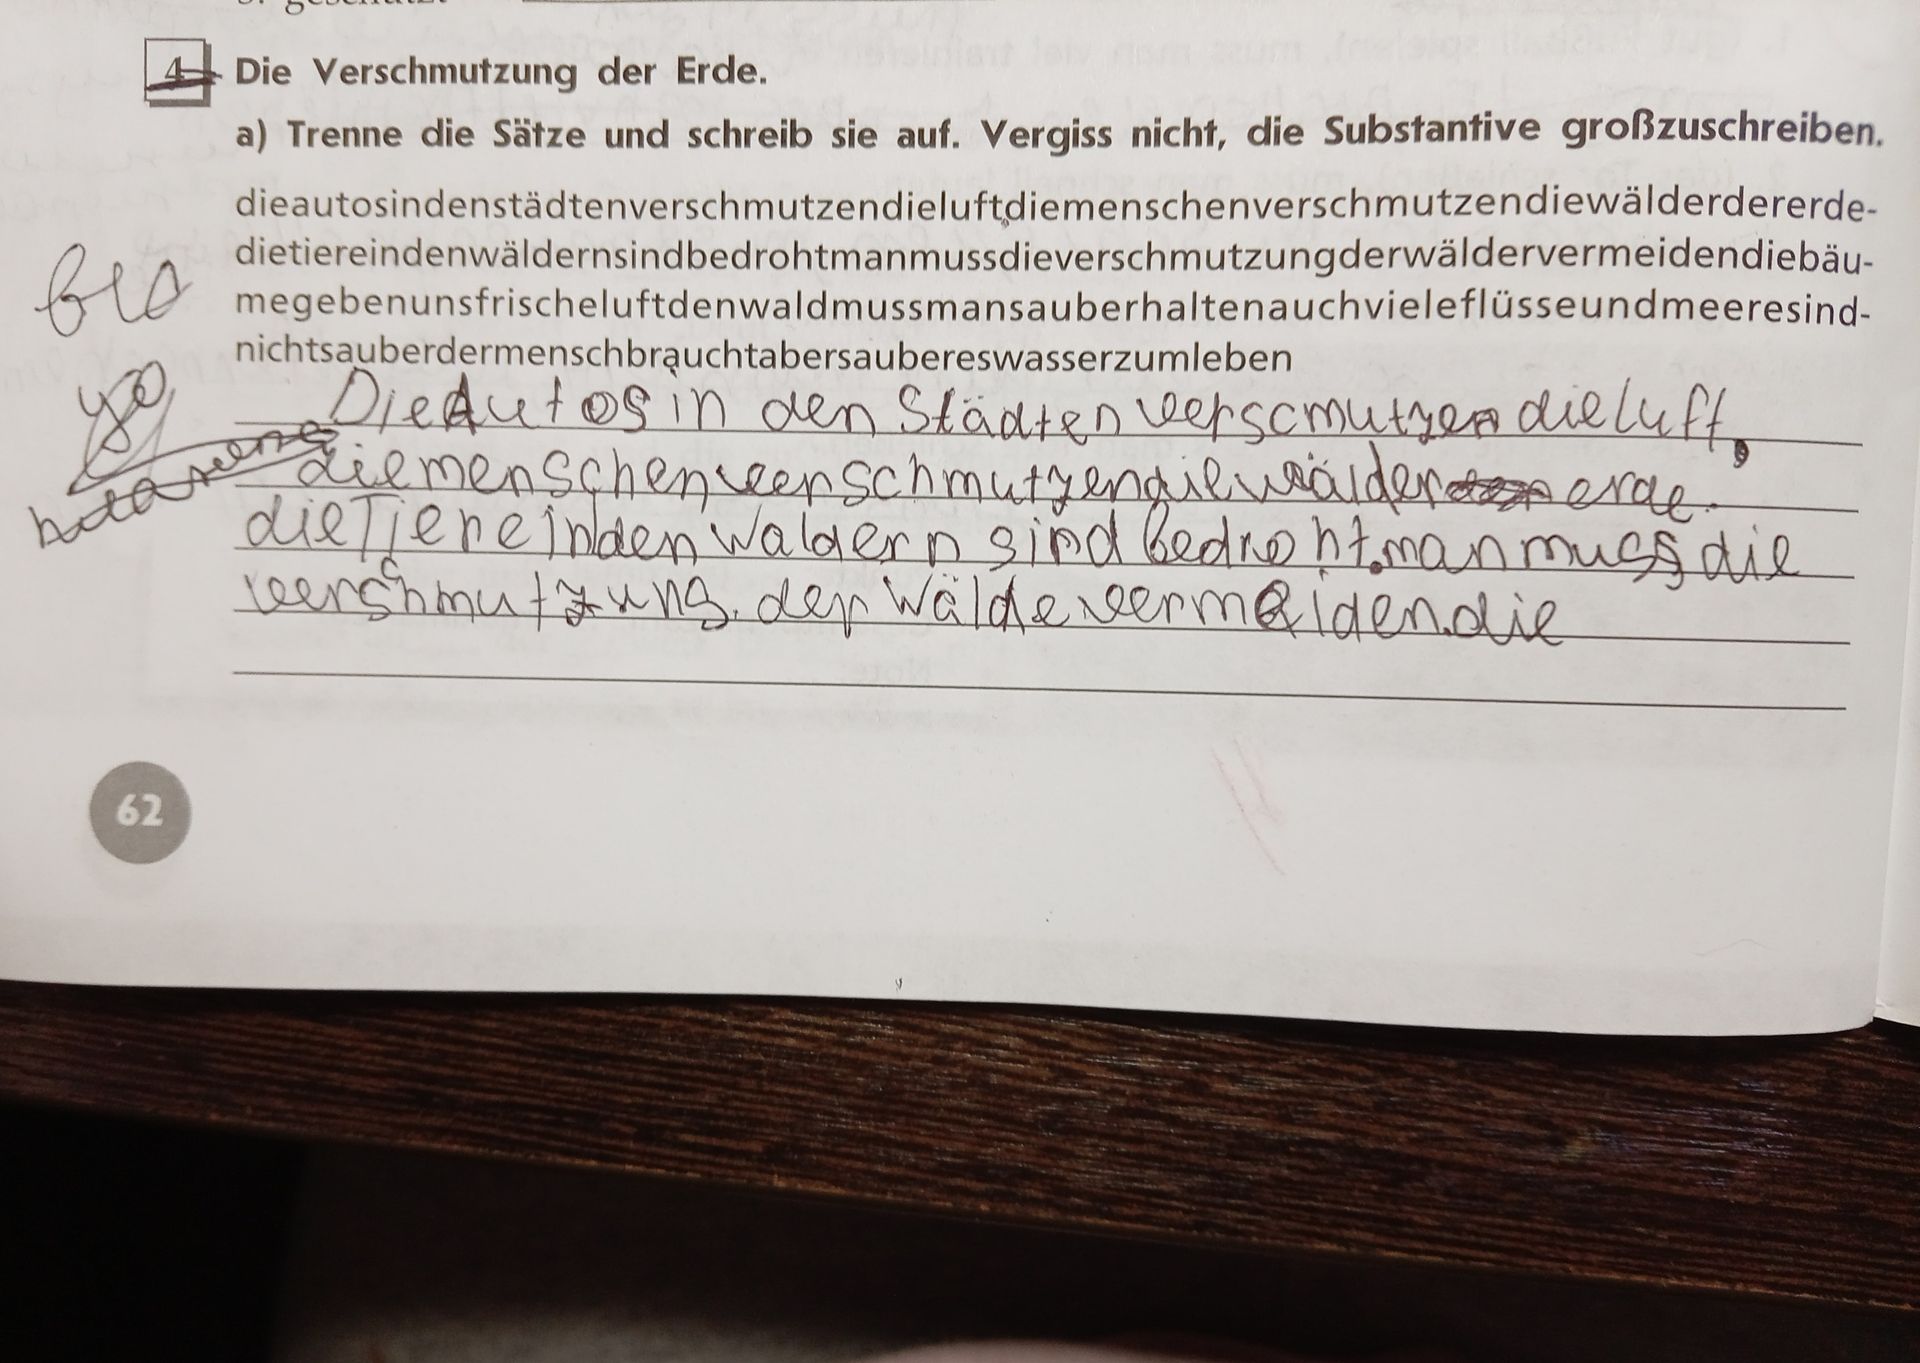 4 Die Verschmutzung der Erde.
a) Trenne die Sätze und schreib sie auf. Vergiss nicht, die Substantive großzuschreiben.
dieautosindenstädtenverschmutzendieluftdiemenschenverschmutzendiewälderdererde-
dietiereindenwäldernsindbedrohtmanmussdieverschmutzungderwäldervermeidendiebäu-
megebenunsfrischeluftdenwaldmussmansauberhaltenauchvieleflüsseundmeeresind-
nichtsauberdermenschbrauchtabersaubereswasserzumleben
Die Autos in den Städten verscmutzen die luft,
die menschen veerschmutzen die wälder erde.
die Tiere in den Waldern sind bedroht. man muss die
verschmutzung. der Wälde vermeiden. die
62